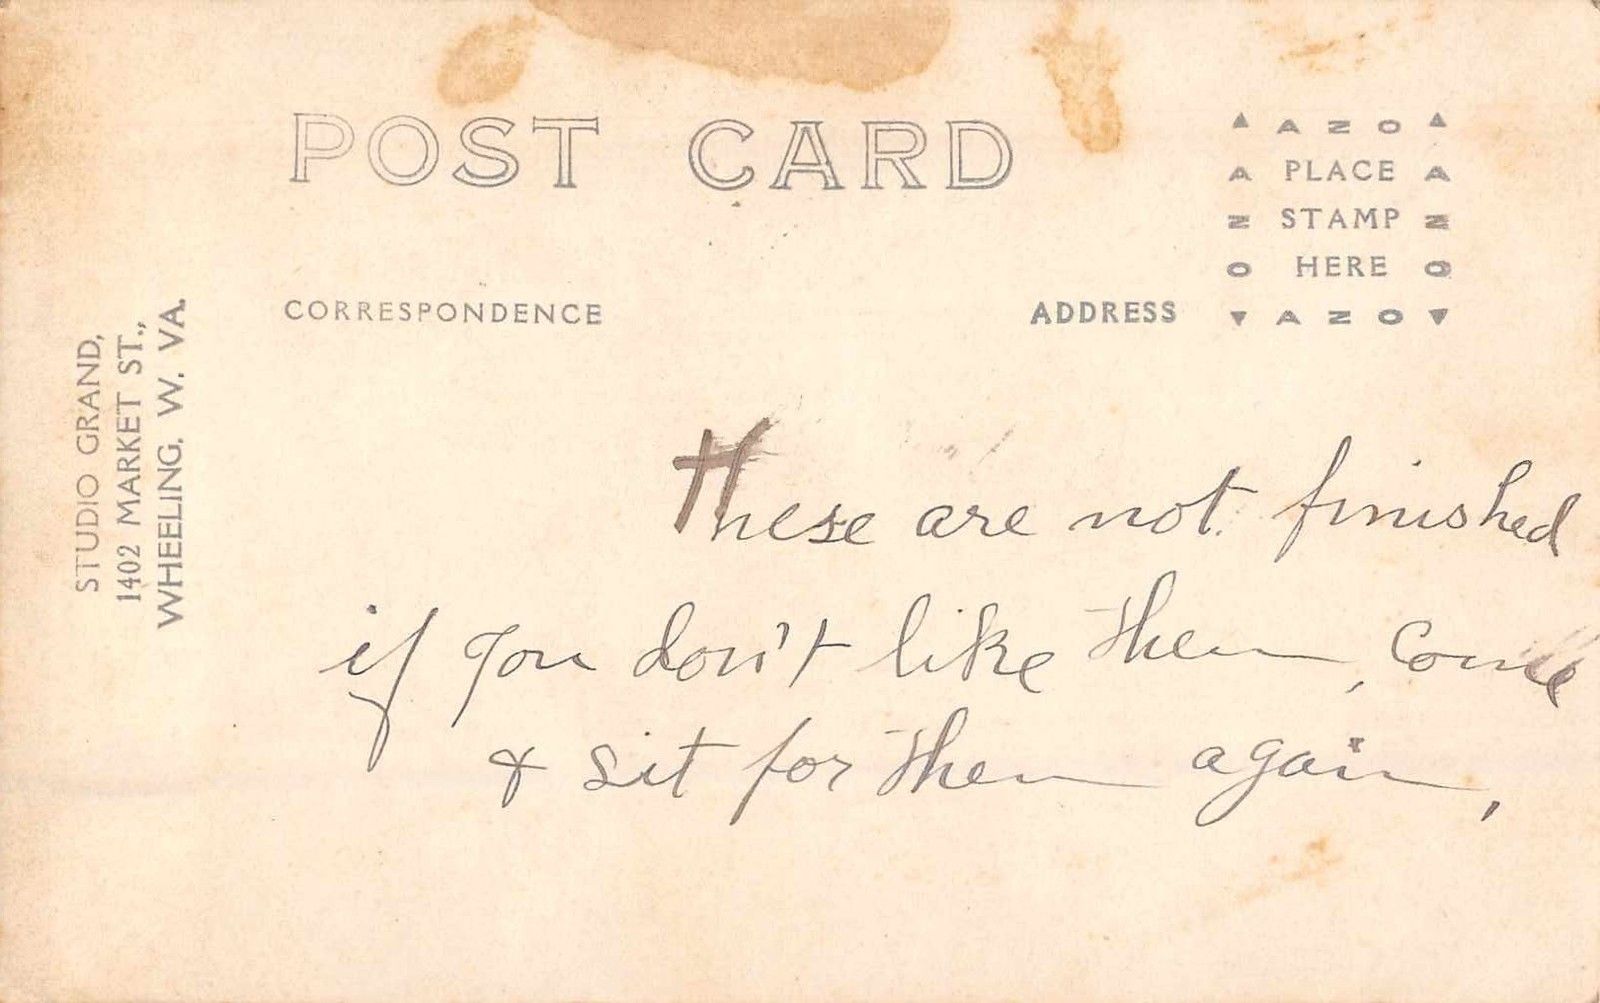 POST CARD
▲ A Z O ▲
A PLACE A
Z STAMP Z
O HERE O
▼ A Z O ▼
CORRESPONDENCE
ADDRESS
STUDIO GRAND,
1402 MARKET ST.,
WHEELING, W. VA.
These are not finished
if you don't like them, come
& sit for them again,